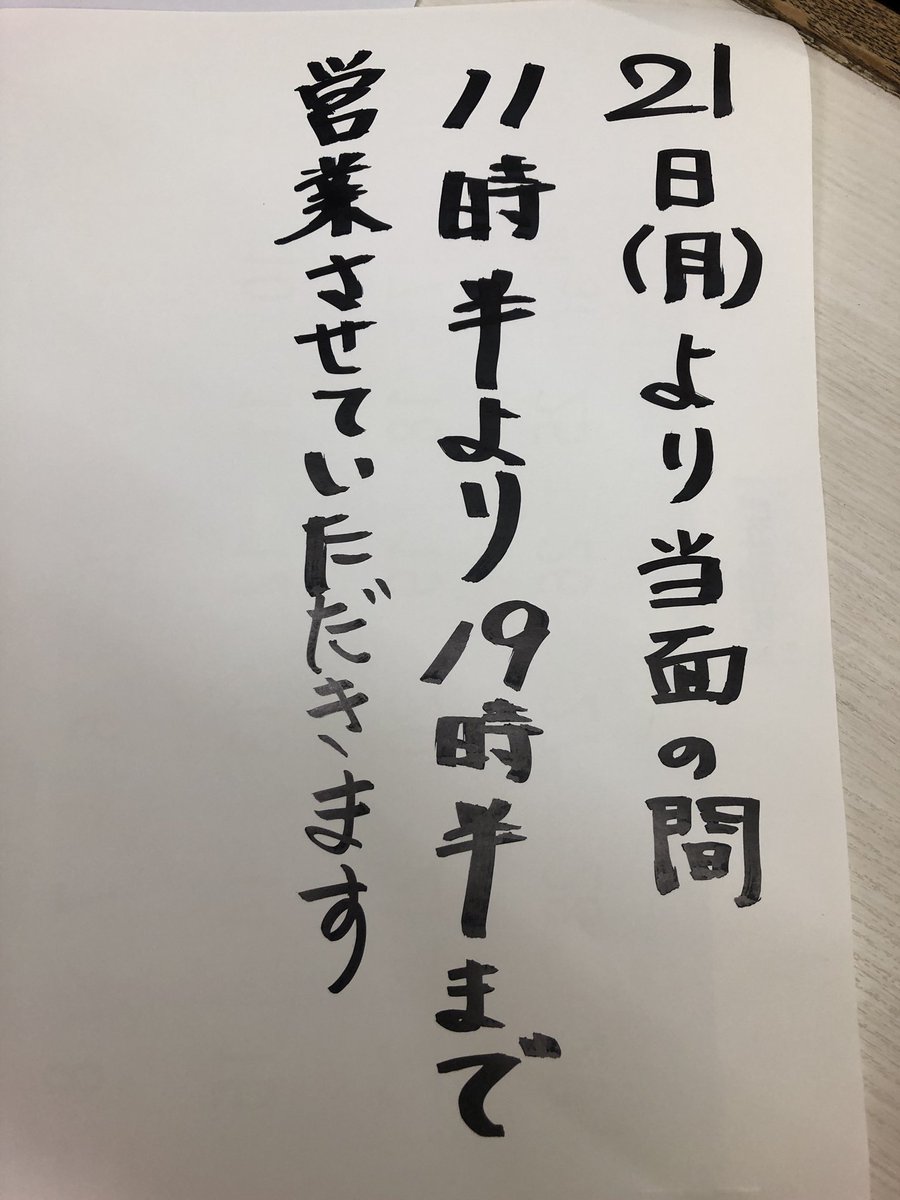 21日(月)より当面の間
11時半より19時半まで
営業させていただきます